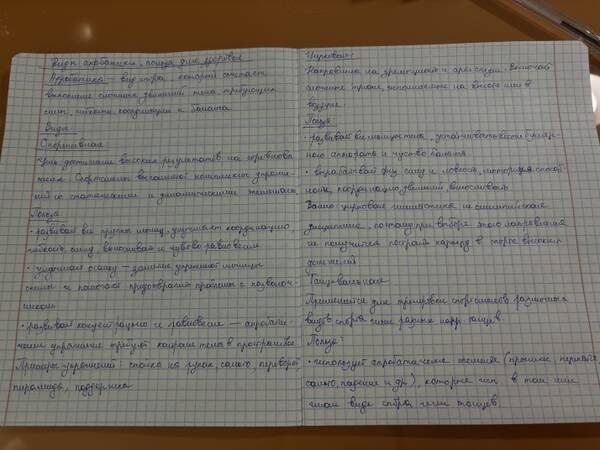 Виды акробатики, польза для здоровья
Акробатика — вид спорта, который сочетает
выполнение сложных движений тела требующих
силы, гибкости, координации и баланса.
Виды
Спортивная
Цель достижение высоких результатов на соревнова
ниях. Спортсмены выполняют комплексы упражне
ний со статическими и динамическими элементами
Польза
• развивает все группы мышц, улучшает координацию,
гибкость, силу, выносливая и чувство равновесия
• улучшает осанку — занятия укрепляют мышцы
спины и помогают предотвратить проблемы с позвоноч-
ником
• развивает концентрацию и — акробатиче-
ские упражнения требуют контроля тела в пространстве
Примеры упражнений стойка на руках, сальто, переворот
пирамида, поддержка
Цирковая
Направлена на зрелищность и артистизм. Включает
сложные трюки, исполняемые на высоте или в
воздухе.
Польза
• развивает все мышцы тела, вестибуляр-
ного аппарата и чувство баланса
• вырабатывает физ. силу и ловкость, способ
ность, координацию движений, выносливость
Важно цирковая гимнастика не олимпийская
дисциплина, поэтому при выборе этого направления
не получится построить карьеру в спорте высоких
достижений
Танцевальная
Применяется для тренировки спортсменов различных
видов спорта или разных танцев
Польза
• использует акробатические элементы (прыжки, перекаты,
сальто, падение и др), которые есть в том или
ином виде спорта или танцев.